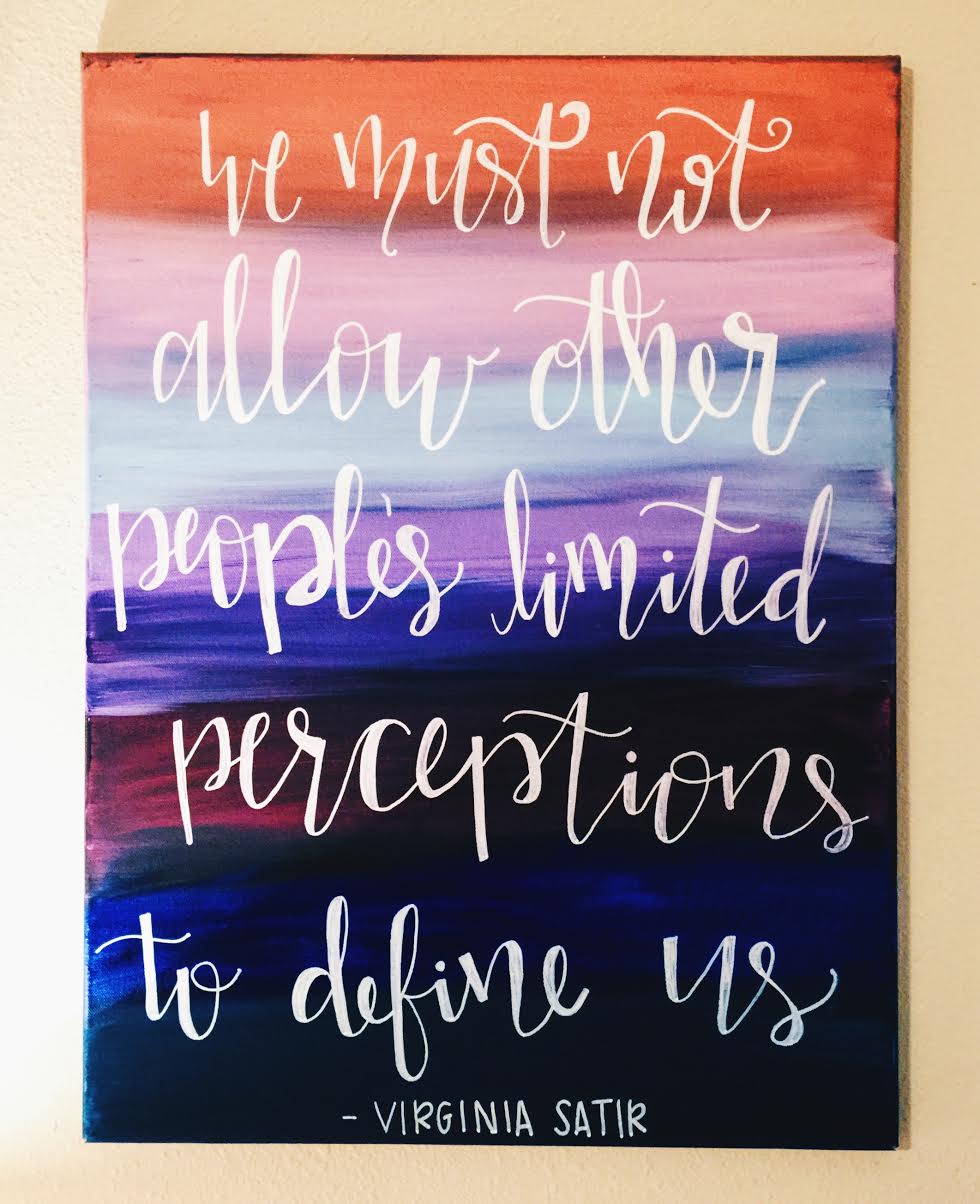 We must not
allow other
people's limited
perceptions
to define us
- VIRGINIA SATIR